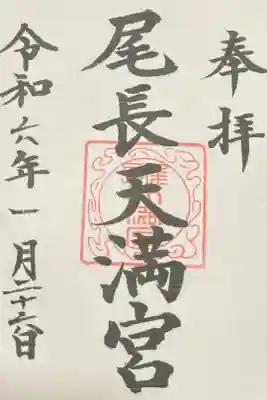 奉拝
尾長天満宮
令和六年一月二十六日